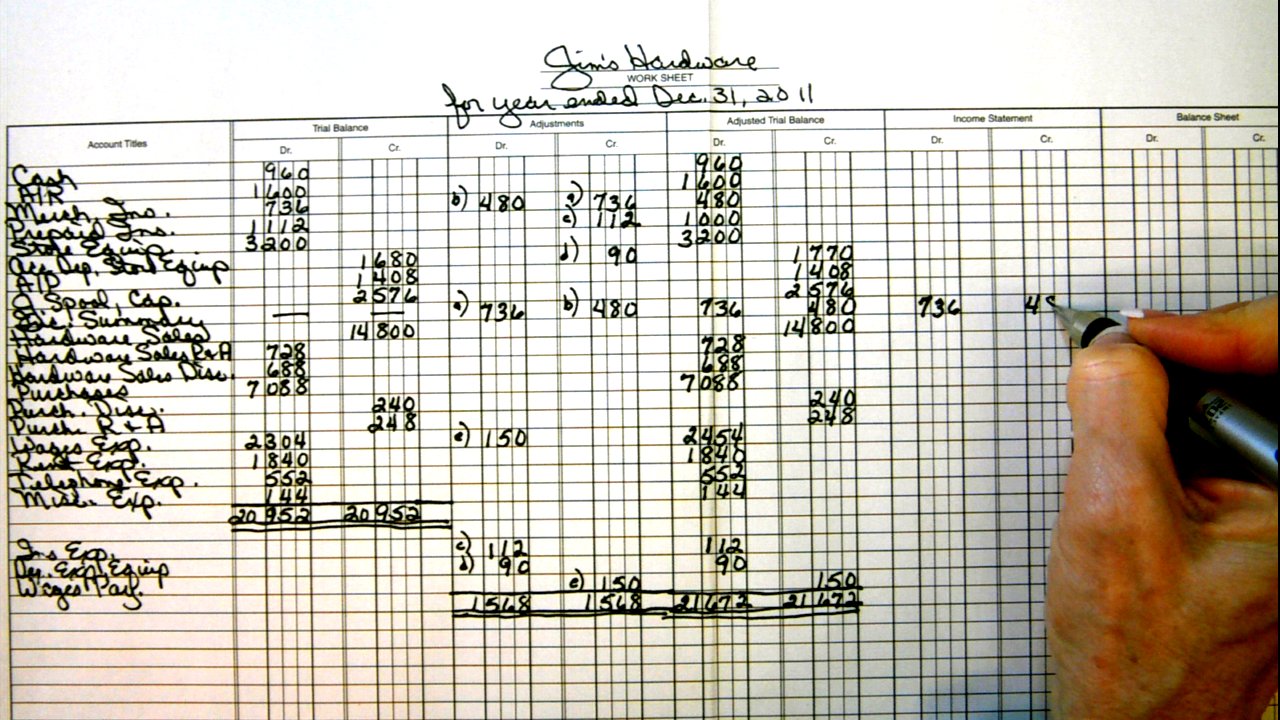 Jim's Hardware
WORK SHEET
for year ended Dec. 31, 2011
Account Titles Trial Balance Adjustments Adjusted Trial Balance Income Statement Balance Sheet
Dr. Cr. Dr. Cr. Dr. Cr. Dr. Cr. Dr. Cr.
Cash 960 960
A/R 1600 1600
Merch. Inv. 736 b) 480 a) 736 480
Prepaid Ins. 1112 c) 112 1000
Store Equip. 3200 3200
Acc. Dep. Store Equip 1680 d) 90 1770
A/P 1408 1408
J. Spool, Cap. 2576 2576
Inc. Summary — — a) 736 b) 480 736 480 736 48
Hardware Sales 14800 14800
Hardware Sales R&A 728 728
Hardware Sales Disc. 688 688
Purchases 7088 7088
Purch. Disc. 240 240
Purch. R & A 248 248
Wages Exp. 2304 e) 150 2454
Rent Exp. 1840 1840
Telephone Exp. 552 552
Misc. Exp. 144 144
20952 20952
Ins Exp. c) 112 112
Dep. Exp. Equip d) 90 90
Wages Pay. e) 150 150
1568 1568 21672 21672